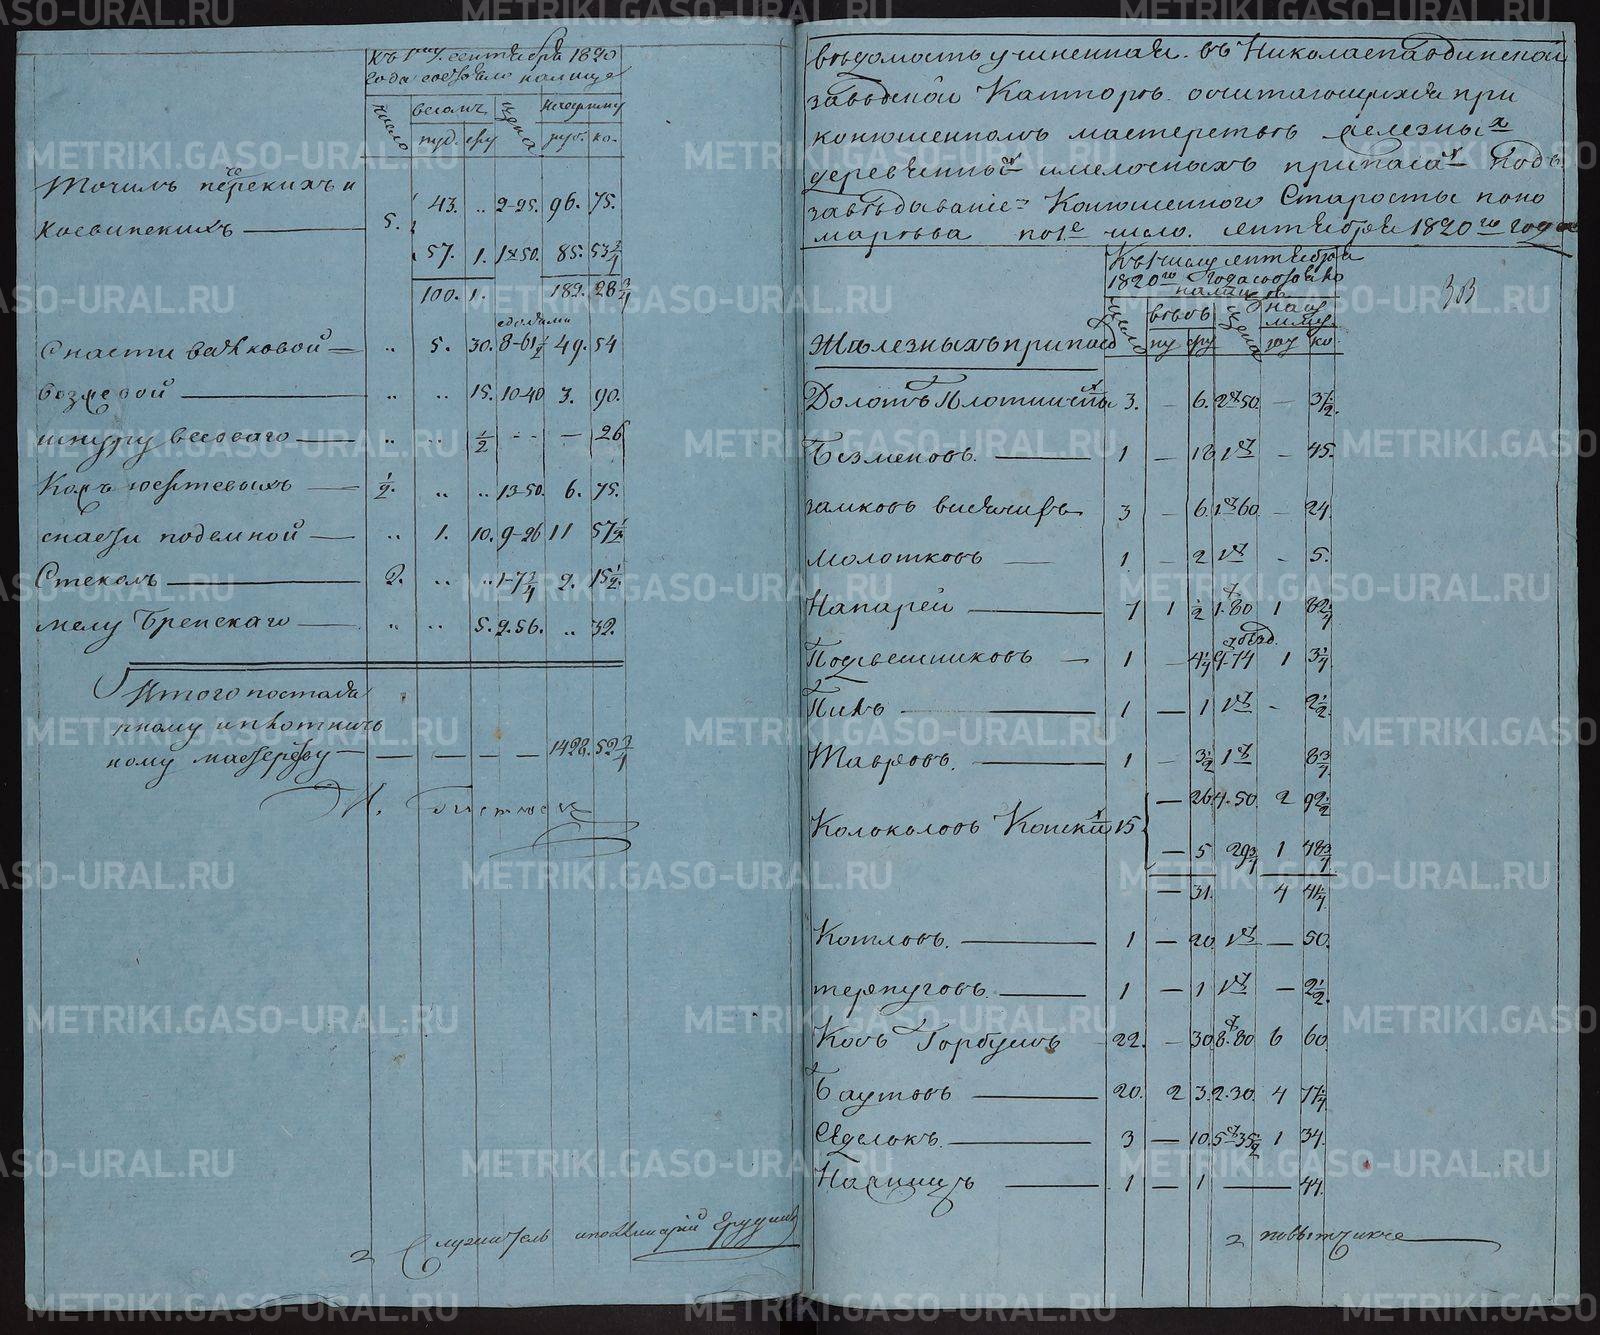 къ 1му сентября 1820
года состояло налице
число
весомъ
цена
насумму
пуд. фу
руб. ко.
Точилъ перскихъ и
Косвинскихъ 5. 43. „ 2-25. 96. 75.
57. 1. 1 50. 85. 53 3/4
100. 1. 182. 28 3/4
Снасти 5. 30. 8-61 1/2 49. 54
возжевой 15. 10-40 3. 90.
шнуру весоваго 1/2 - - — 26
Кожъ юфтевыхъ 1/2. „ „ 13-50. 6. 75.
снасти подемной „ 1. 10. 9-26 11 57 1/2
Стеколъ 2. „ „ 1-7 3/4 2. 15 1/2.
мелу Бренскаго „ „ 5. 2.56. „ 32.
Итого постоля
рному иплотнич
ному мастерству — — — — — 1428. 52 3/4
служитель
ведомость учиненная въ Николаепавдинской
заводской Канторе очитающихся при
конюшенномъ мастерстве железных
деревенных имелочныхъ припасах подъ
заведование Конюшенного Старосты поно
марева по 1е число сентября 1820го года
303
Къ 1 числу сентября
1820го года состояло
налицо
число
весъ
цена
на су
мму
пу фу
ру ко.
Железныхъ припас
Долотъ плотничных 3. — 6. 2 50 — 37 1/2.
Безменовъ. 1 — 18 1 — 45.
замковъ висячихъ 3 — 6. 1 60 — 24
молотковъ 1 — 2 1 — 5.
Напарей 7 1 1/2 1.80 1 82 1/4
Подсвешниковъ 1 — 4 1/4 9-74 1 3 1/4
Пилъ 1 — 1 1 - 2 1/2.
Тавровъ. 1 — 3 1/2 1 8 3/4
Колоколовъ Конских 15 — 26 4.50. 2 92 1/2
— 5 29 3/4 1 48 3/4
— 31. 4 41 1/4
Котловъ. 1 — 20. 1 — 50.
терпуговъ. 1 — 1 1 — 2 1/2.
Косъ Горбушъ 22. — 30 8.80 6 60
Баутовъ 20. 2 3. 2.30. 4 77 1/4
Седелокъ. 3 — 10. 5 35 1/2 1 34.
1 — 1 — 44.
повытчикъ
METRIKI.GASO-URAL.RU